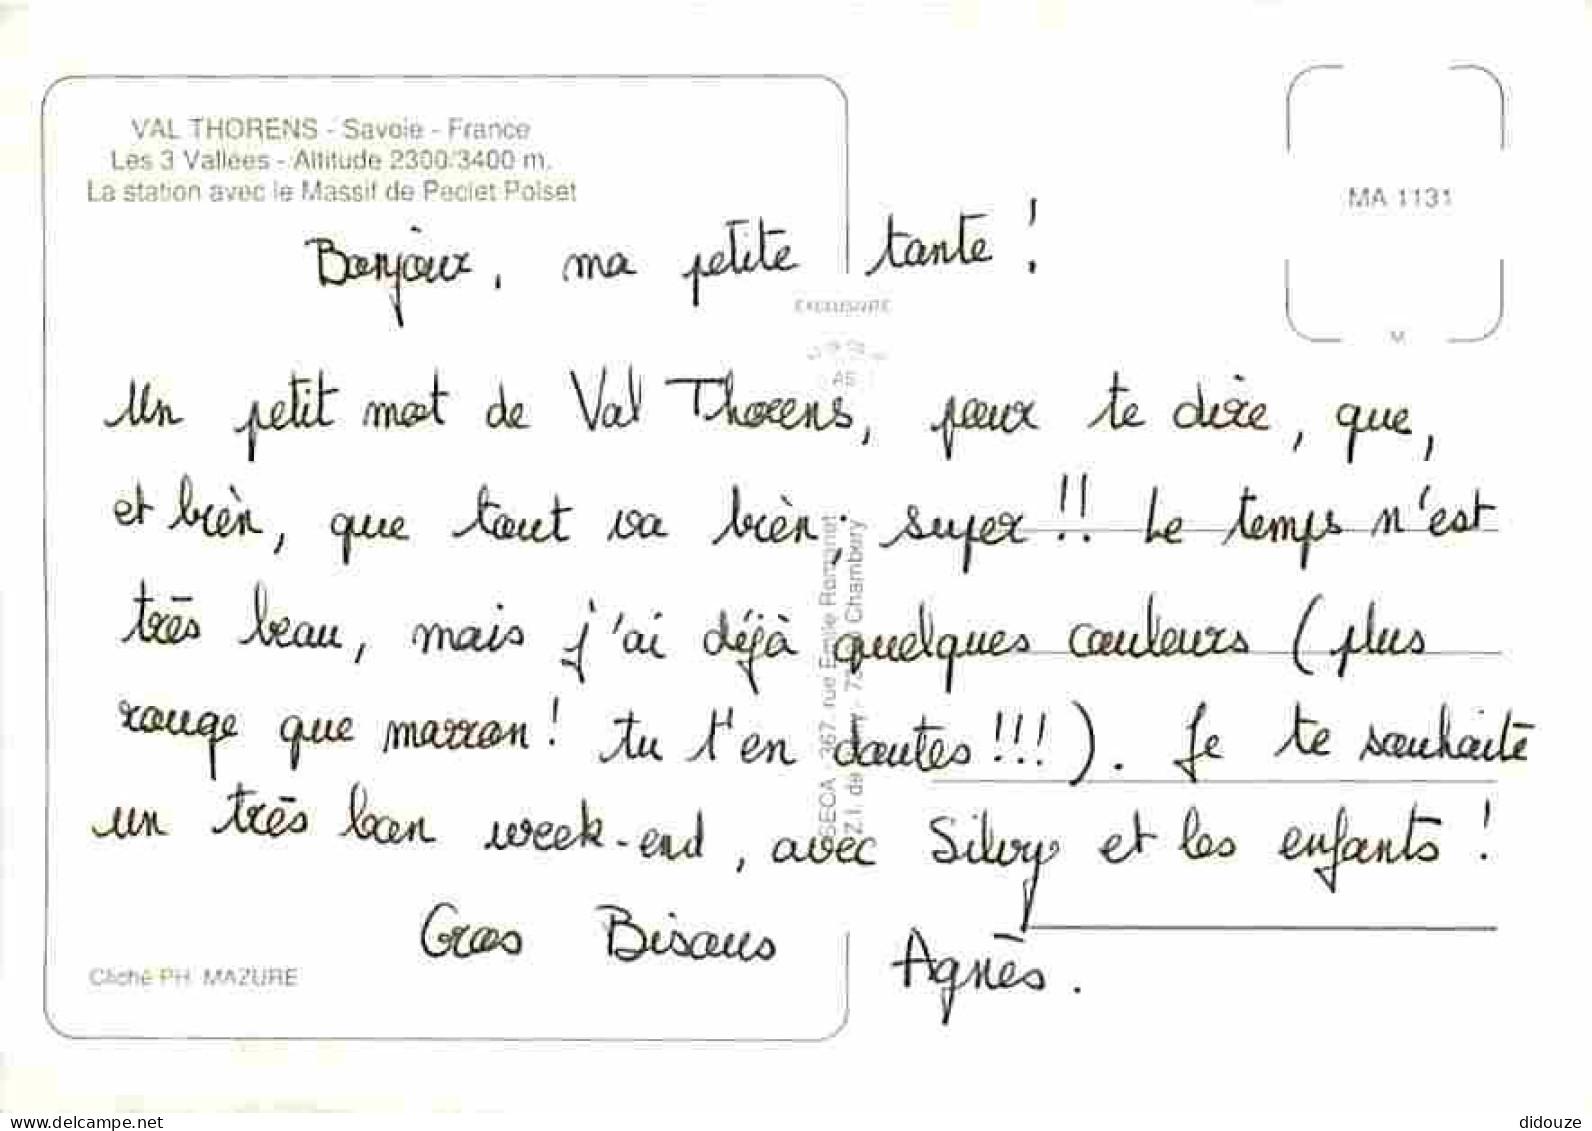 VAL THORENS - Savoie - France
Les 3 Vallées - Altitude 2300/3400 m.
La station avec le Massif de Peclet Polset
MA 1131
Bonjour, ma petite tante !
EXCLUSIVITE
M
Un petit mot de Val Thorens, pour te dire, que,
et bien, que tout va bien; super !! Le temps n'est
très beau, mais j'ai déjà quelques couleurs (plus
rouge que marron ! tu t'en doutes !!!). Je te souhaite
un très bon week-end, avec Silvy et les enfants !
Gros Bisous Agnès.
SECA - 367, rue Emile Romanet
Z.I. de - 73 Chambéry
Cliché PH. MAZURE
delcampe.net
didouze